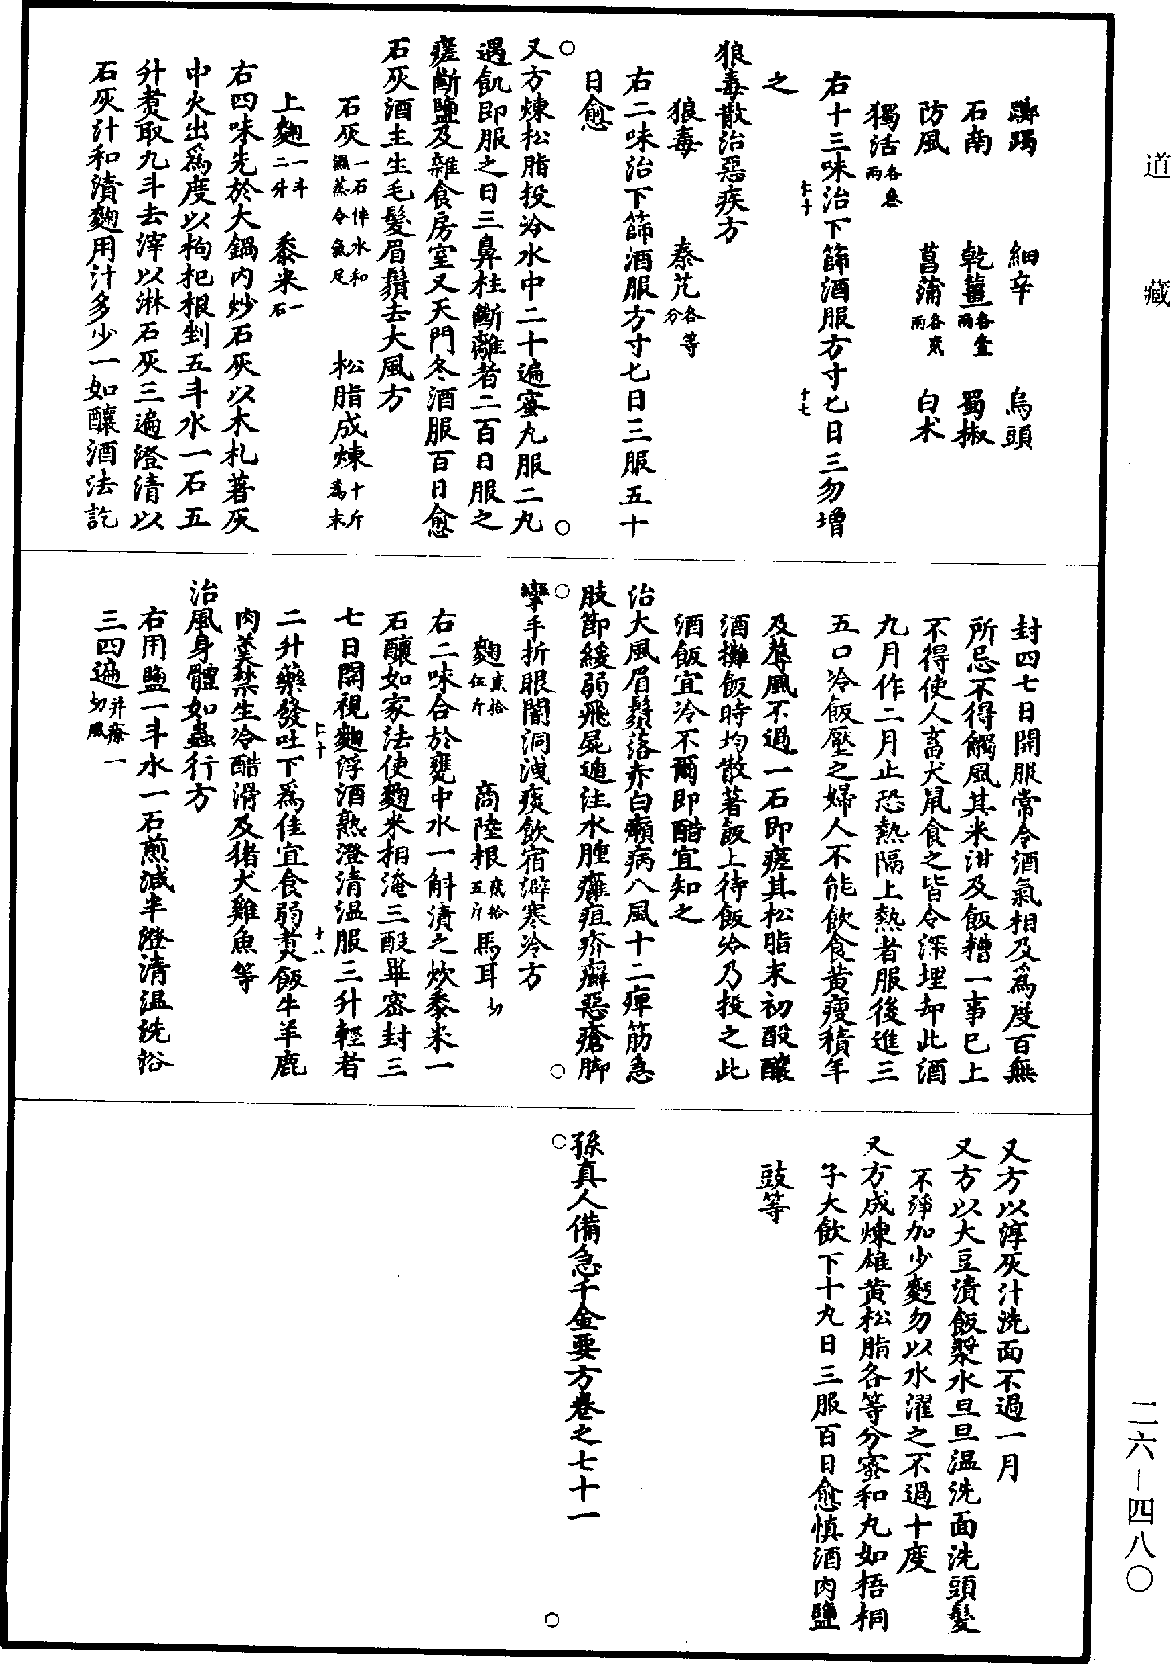 道藏
躑躅　細辛　烏頭
石南　乾薑各壹兩　蜀椒
防風　菖蒲各貳兩　白术
獨活各叁兩
右十三味治下篩酒服方寸匕日三勿增
之
狼毒散治惡疾方
狼毒　秦艽各等分
右二味治下篩酒服方寸匕日三服五十
日愈
又方煉松脂投冷水中二十遍蜜丸服二丸
遇飢即服之日三鼻柱斷離者二百日服之
瘥斷鹽及雜食房室又天門冬酒服百日愈
石灰酒主生毛髮眉鬚去大風方
石灰一石伴水和濕蒸令氣足　松脂成煉十斤為末
上麴一斗二升　黍米一石
右四味先於大鍋內炒石灰以木札著灰
中火出為度以枸杞根剉五斗水一石五
升煑取九斗去滓以淋石灰三遍澄清以
石灰汁和漬麴用汁多少一如釀酒法訖
封四七日開服常令酒氣相及爲度百無
所忌不得觸風其米泔及飯糟一事已上
不得使人畜犬鼠食之皆令深埋却此酒
九月作二月止恐熱隔上熱者服後進三
五口冷飯壓之婦人不能飲食黃瘦積年
及蓐風不過一石即瘥其松脂末初酘釀
酒攤飯時均散著飯上待飯冷乃投之此
酒飯宜冷不爾即醋宜知之
治大風眉鬚落赤白癩病八風十二痺筋急
肢節緩弱飛屍遁注水腫癰疽疥癬惡瘡脚
攣手折眼闇洞洩痰飲宿澼寒冷方
麴貳拾伍斤　商陸根貳拾五斤馬耳切
右二味合於甕中水一斛漬之炊黍米一
石釀如家法使麴米相淹三酘畢密封三
七日開視麴浮酒熟澄清溫服三升輕者
二升藥發吐下爲佳宜食弱煑飯牛羊鹿
肉羮禁生冷酷滑及猪犬雞魚等
治風身體如蟲行方
右用鹽一斗水一石煎減半澄清溫洗浴
三四遍并療一切風
又方以淳灰汁洗面不過一月
又方以大豆漬飯漿水旦旦溫洗面洗頭髮
不淨加少麵勿以水濯之不過十度
又方成煉雄黃松脂各等分蜜和丸如梧桐
子大飲下十丸日三服百日愈慎酒肉鹽
豉等
孫真人備急千金要方卷之七十一
二六—四八〇